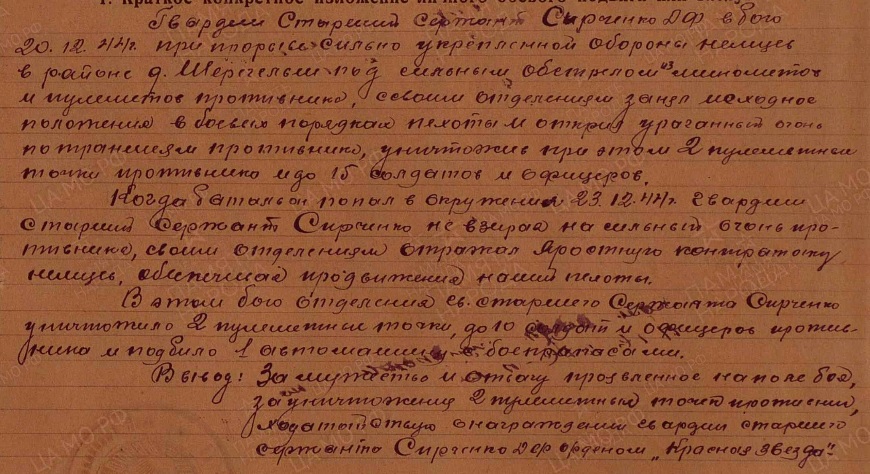 1. Краткое конкретное изложение личного боевого подвига или заслуг
Гвардии Старший Сержант Сирченко Д.Ф. в бою
20.12.44г. при прорыве сильно укрепленной обороны немцев
в районе д. под сильным обстрелом из минометов
и пулеметов противника, своим отделением занял исходное
положение в боевых порядках пехоты и открыл ураганный огонь
по траншеям противника, уничтожив при этом 2 пулеметные
точки противника и до 15 солдатов и офицеров.
Когда батальон попал в окружения 23.12.44г. Гвардии
старший Сержант Сирченко не взирая на сильный огонь про-
тивника, своим отделением отражал яростную контратаку
немцев, обеспечивая продвижения нашей пехоты.
В этом бою отделения гв. старшего Сержанта Сирченко
уничтожило 2 пулеметные точки, до 10 солдат и офицеров против-
ника и подбило 1 автомашину с боеприпасами.
Вывод: За мужество и отвагу проявленное на поле боя,
за уничтожения 2 пулеметных точек противника,
ходатайствую о награждении гвардии старшего
сержанта Сирченко Д.Ф. орденом „Красная звезда".